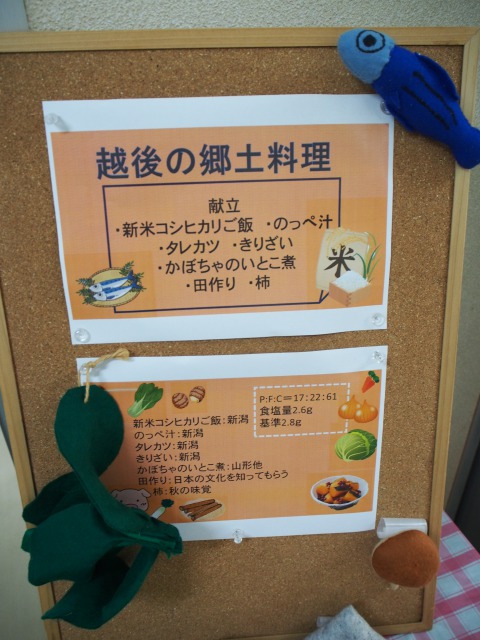 越後の郷土料理
献立
・新米コシヒカリご飯 ・のっぺ汁
・タレカツ ・きりざい
・かぼちゃのいとこ煮
・田作り ・柿
米
新米コシヒカリご飯:新潟
のっぺ汁:新潟
タレカツ:新潟
きりざい:新潟
かぼちゃのいとこ煮:山形他
田作り:日本の文化を知ってもらう
柿:秋の味覚
P:F:C=17:22:61
食塩量2.6g
基準2.8g